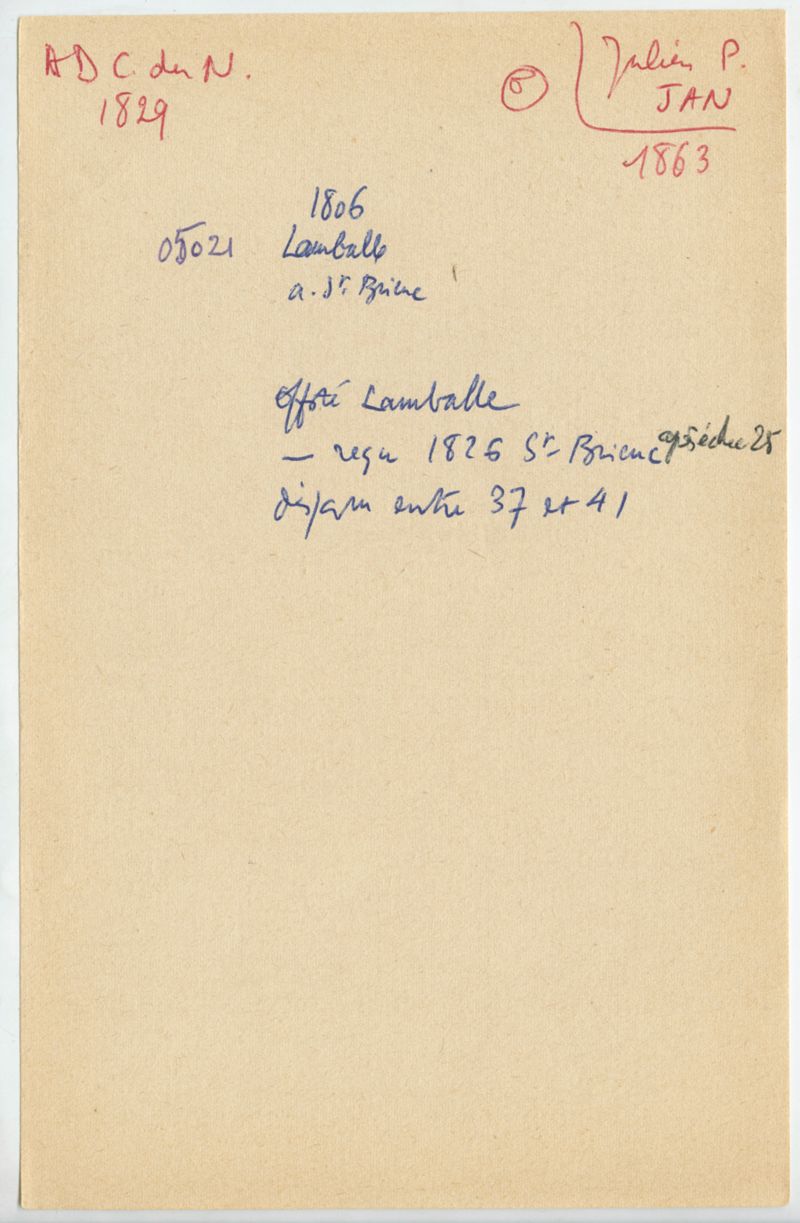 A D C. du N.
1829
Julien P.
JAN
1863
1806
05021
Lamballe
a. St. Brieuc
Lamballe
— reçu 1826 St- Brieuc après échec 25
entre 37 et 41